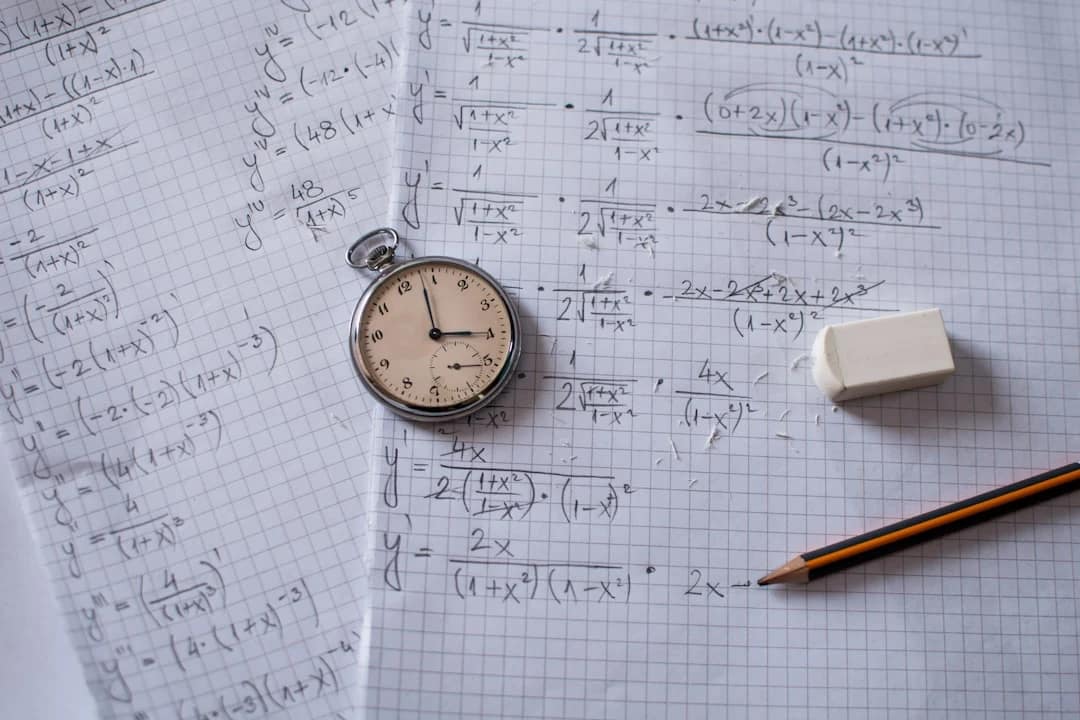 (1+x)²
(1+x) - ((1-x)·1)
(1+x)²
1-x-1+x
(1+x)²
-2
(1+x)²
= (-2/(1+x)²)'
y'' = (-2(1+x)⁻²)'
y'' = (-2·(-2)(1+x)⁻³)
y'' = (4(1+x)⁻³)
y'' = 4/(1+x)³
y''' = (4/(1+x)³)'
y''' = (4·(1+x)⁻³)
·(-3)(1+x)⁻⁴
yᴵⱽ = (-12(1+
yᴵⱽ = (-12·(-4)(
yᴵⱽ = (48(1+x
yᴵⱽ = 48/(1+x)⁵
y' = 1/√((1+x²)/(1-x²)) · 1/(2√((1+x²)/(1-x²))) · ((1+x²)'·(1-x²)-(1+x²)·(1-x²)')/(1-x)²
y' = 1/√((1+x²)/(1-x²)) · 1/(2√((1+x²)/(1-x²))) · ((0+2x)(1-x²)-(1+x²)·(0-2x))/(1-x²)²
y' = 1/√((1+x²)/(1-x²)) · 1/(2√((1+x²)/(1-x²))) · (2x-2x³-(2x-2x³))/(1-x²)²
· 1/(2√((1+x²)/(1-x²))) · (2x-2x³+2x+2x³)/(1-x²)²
1-x² · 1/(2√((1+x²)/(1-x²))) · 4x/(1-x²)²
y' = 4x/(2((1+x²)/(1-x²))·(1-x²)²)
y' = 2x/((1+x²)(1-x²)) · 2x →
12
1
2
3
4
5
8
9
10
11